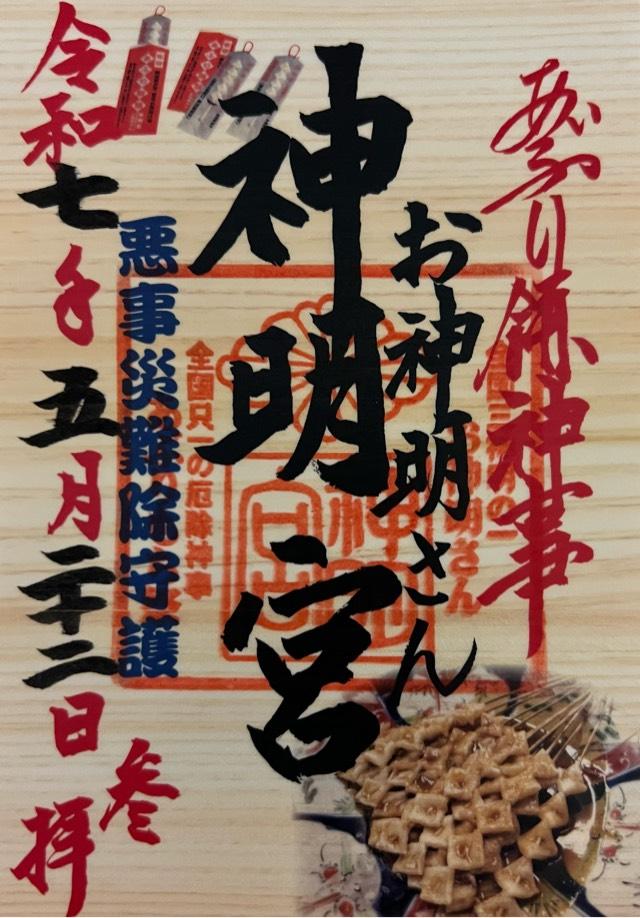 あぶり餅神事
お神明さん
神明宮
全国只一の厄除神事
悪事災難除守護
令和七年五月二十二日
参拝